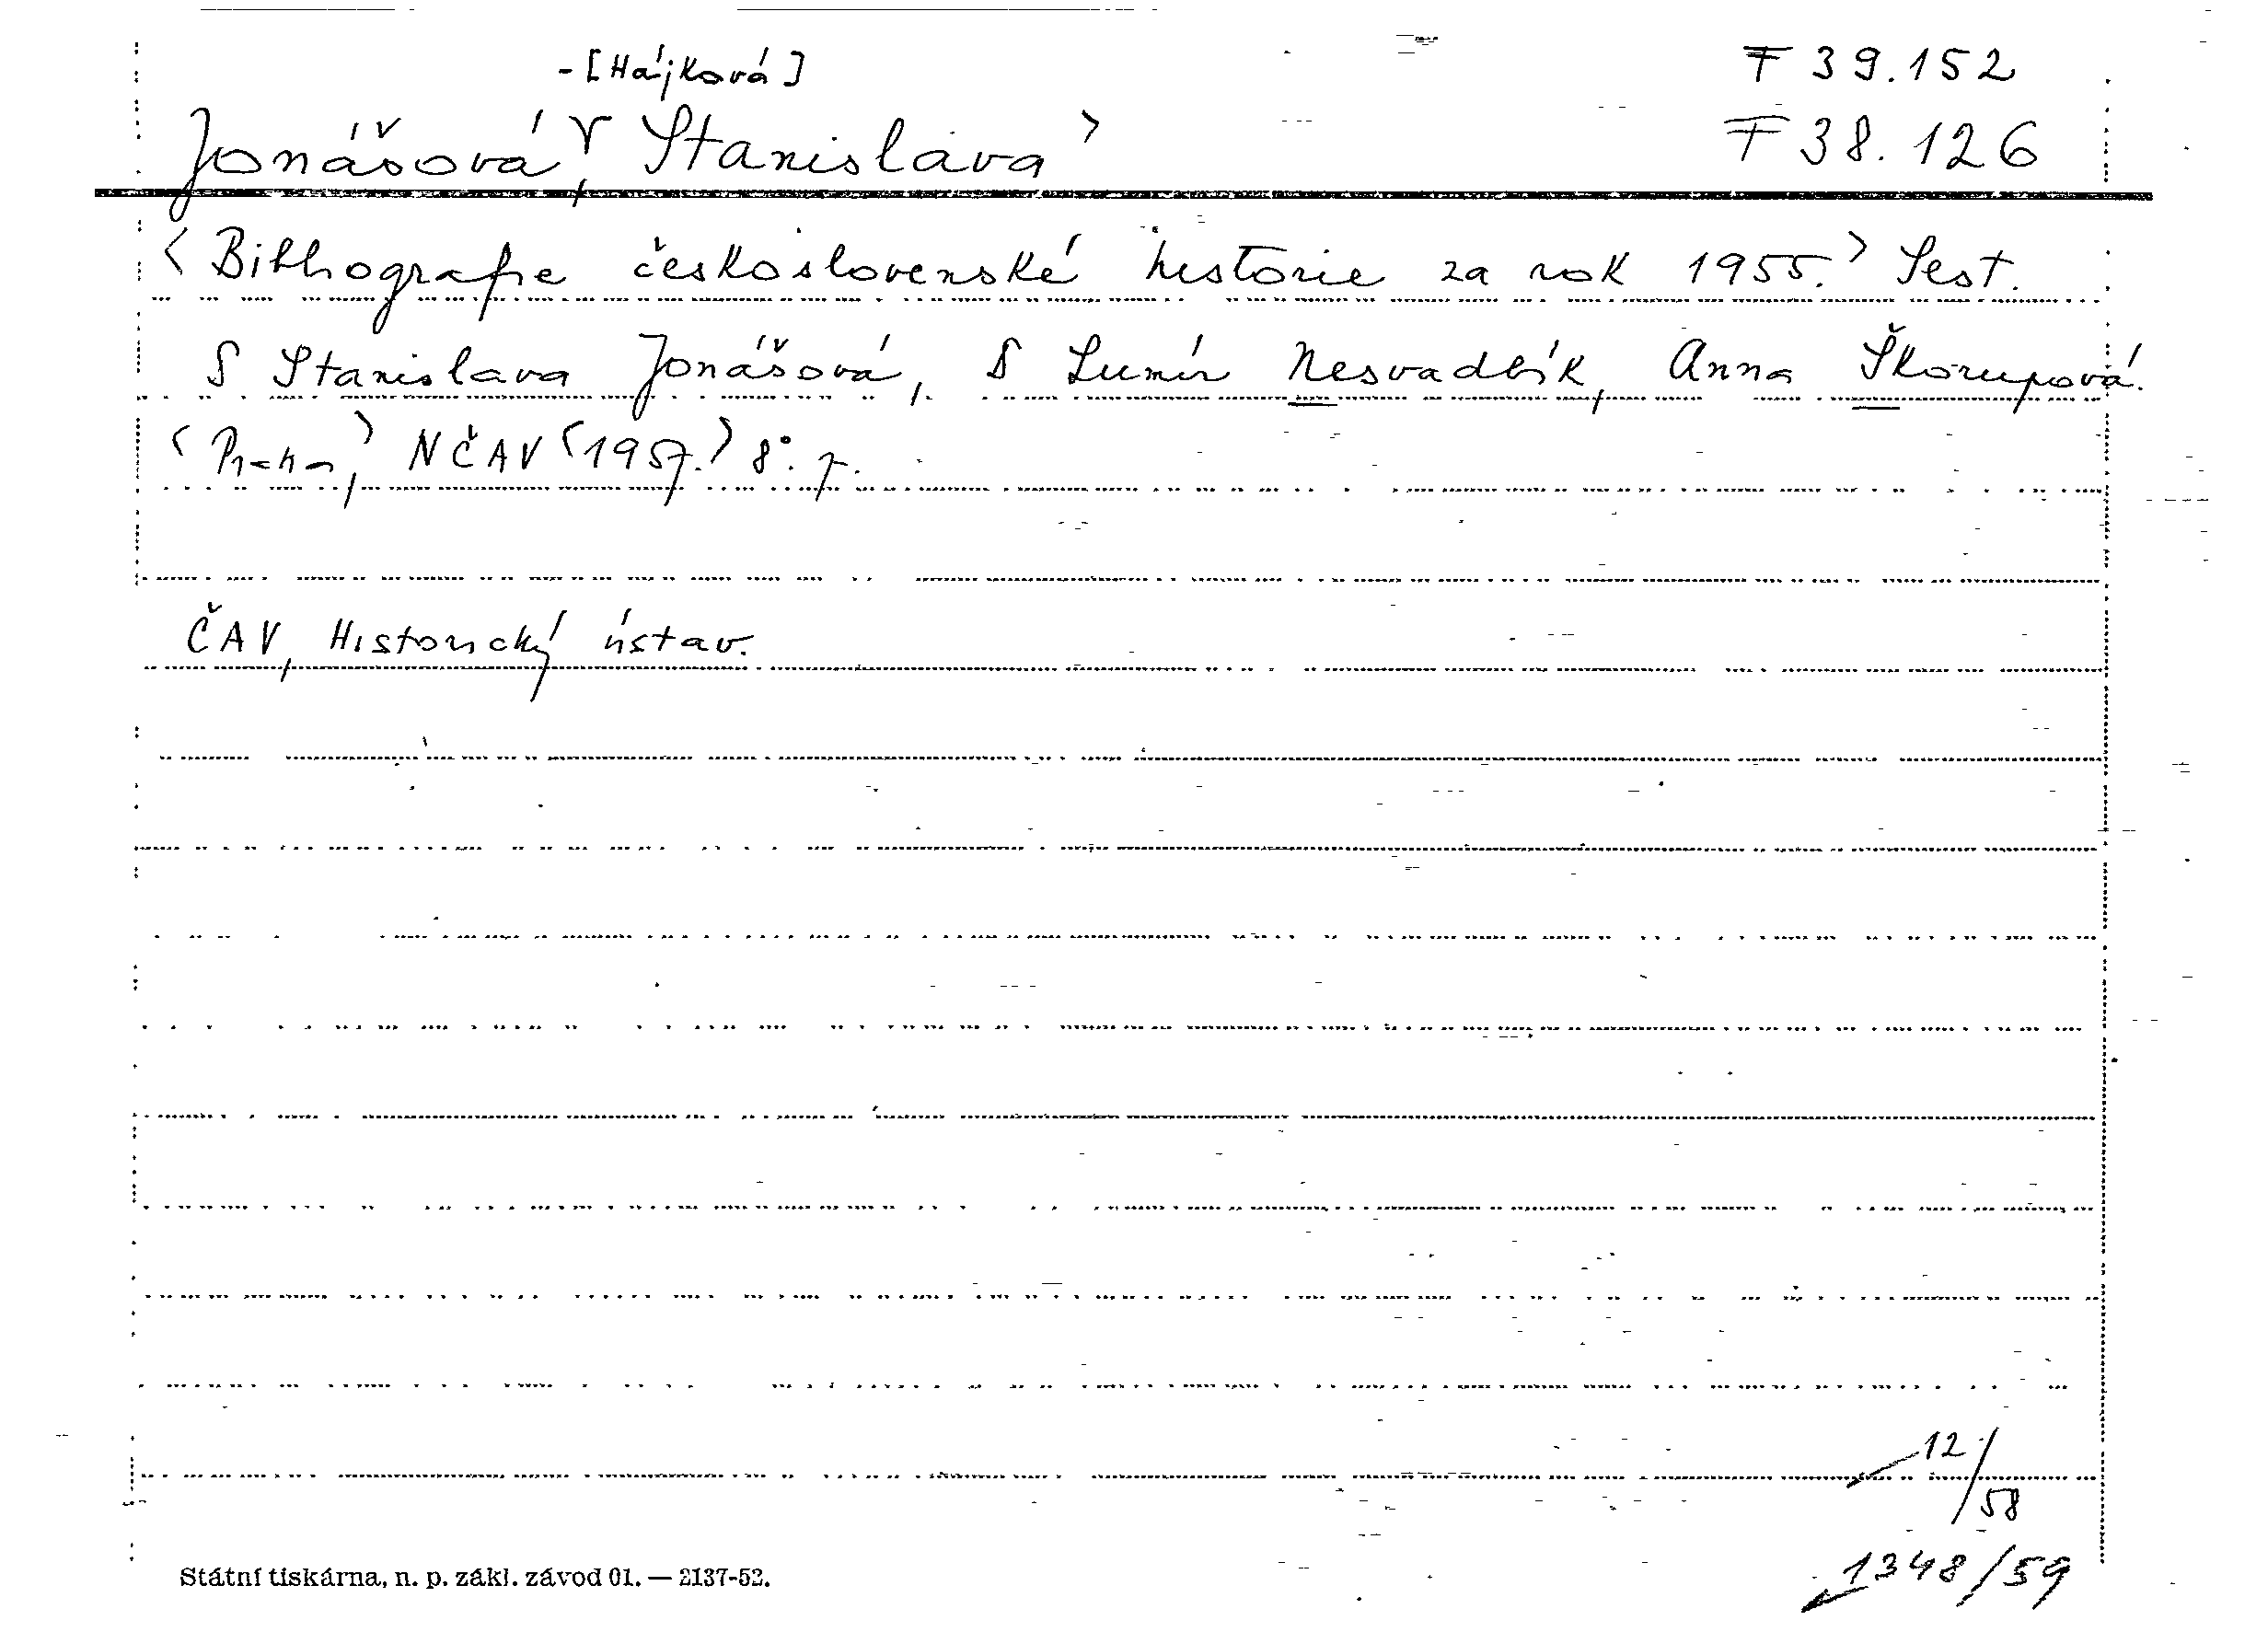 -[Hájková]
F 39.152
Jonášová, Stanislava>
F 38.126
<Bibliografie československé historie za rok 1955.> Sest.
S Stanislava Jonášová, S Lumír Nesvadbík, Anna Škorupová.
<Praha,> NČAV <1957.> 8°.
ČAV, Historický ústav.
12/58
Státní tiskárna, n. p. zákl. závod 01. — 2137-52.
1348/59